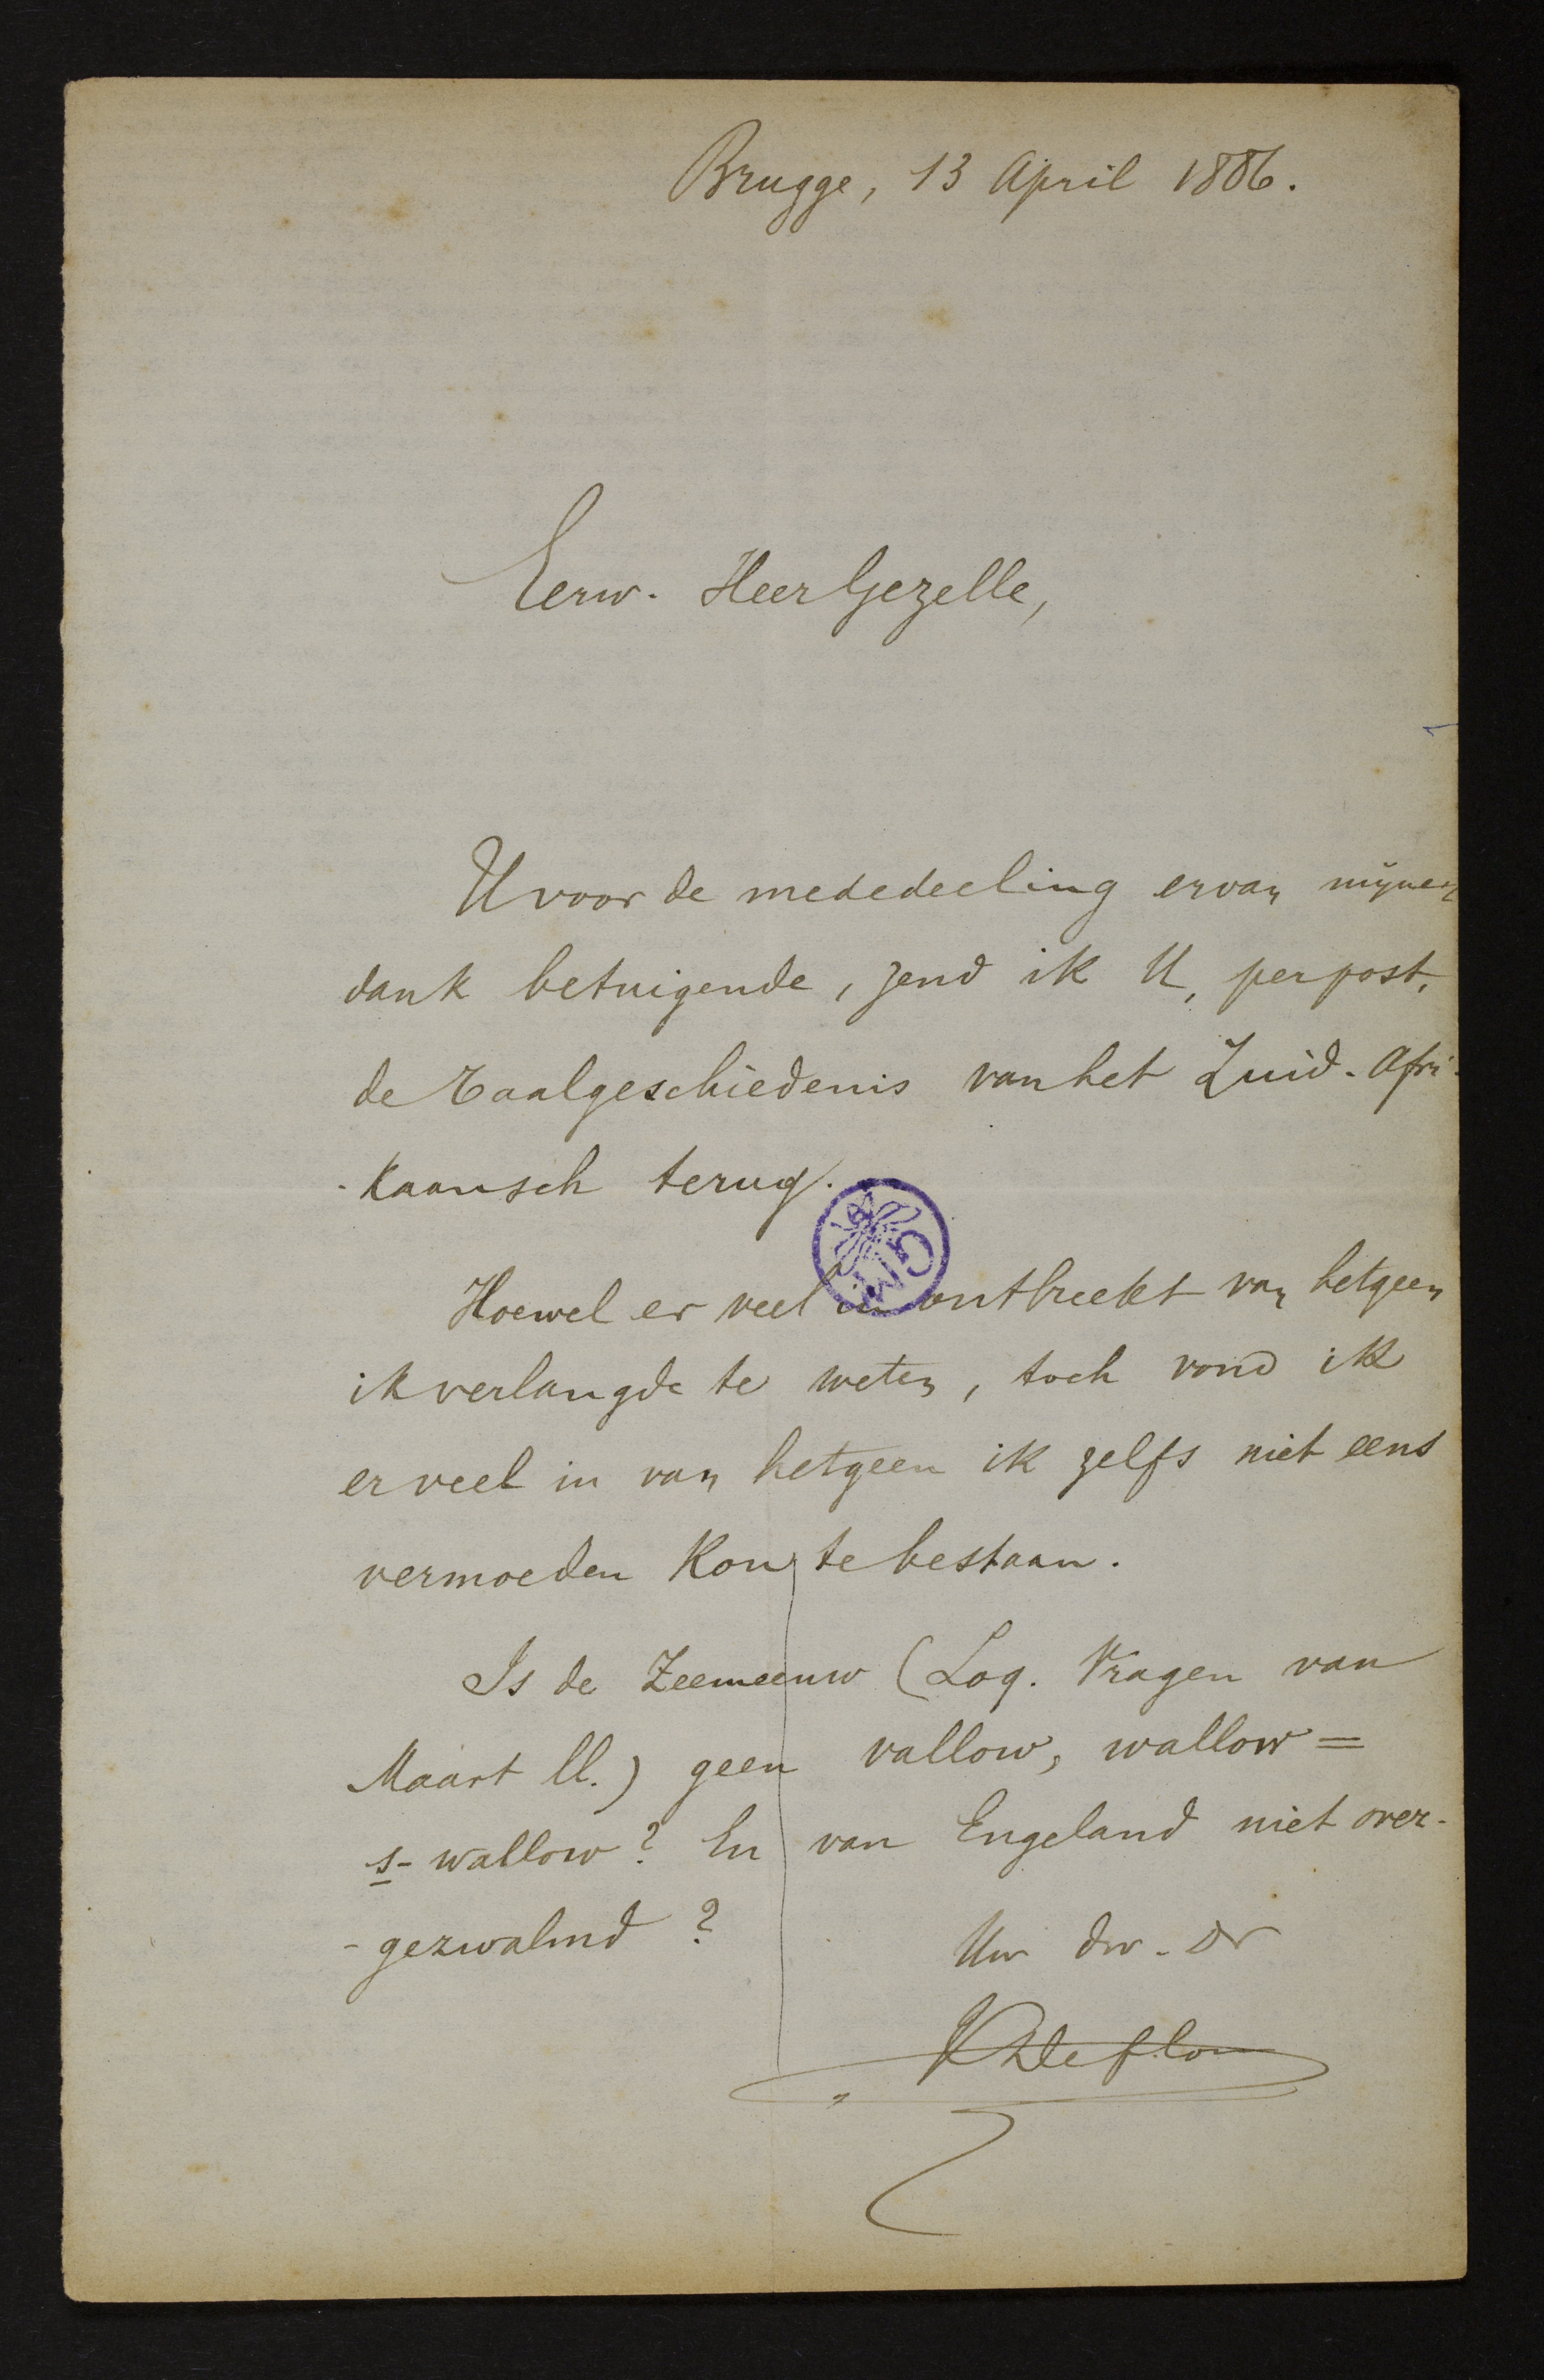 Brugge, 13 April 1886.
Eerw. Heer Gezelle,
U voor de mededeeling ervan mijnen
dank betuigende, zend ik U, per post,
de Taalgeschiedenis van het Zuid-Afri-
-kaansch terug.
GM
Hoewel er veel in ontbreekt van hetgeen
ik verlangde te weten, toch vond ik
er veel in van hetgeen ik zelfs niet eens
vermoeden kon te bestaan.
Is de Zeemeeuw (Loq. Vragen van
Maart ll.) geen vallow, wallow =
s-wallow? En van Engeland niet over-
-gezwalmd?
Uw dw. Dr
K Deflou